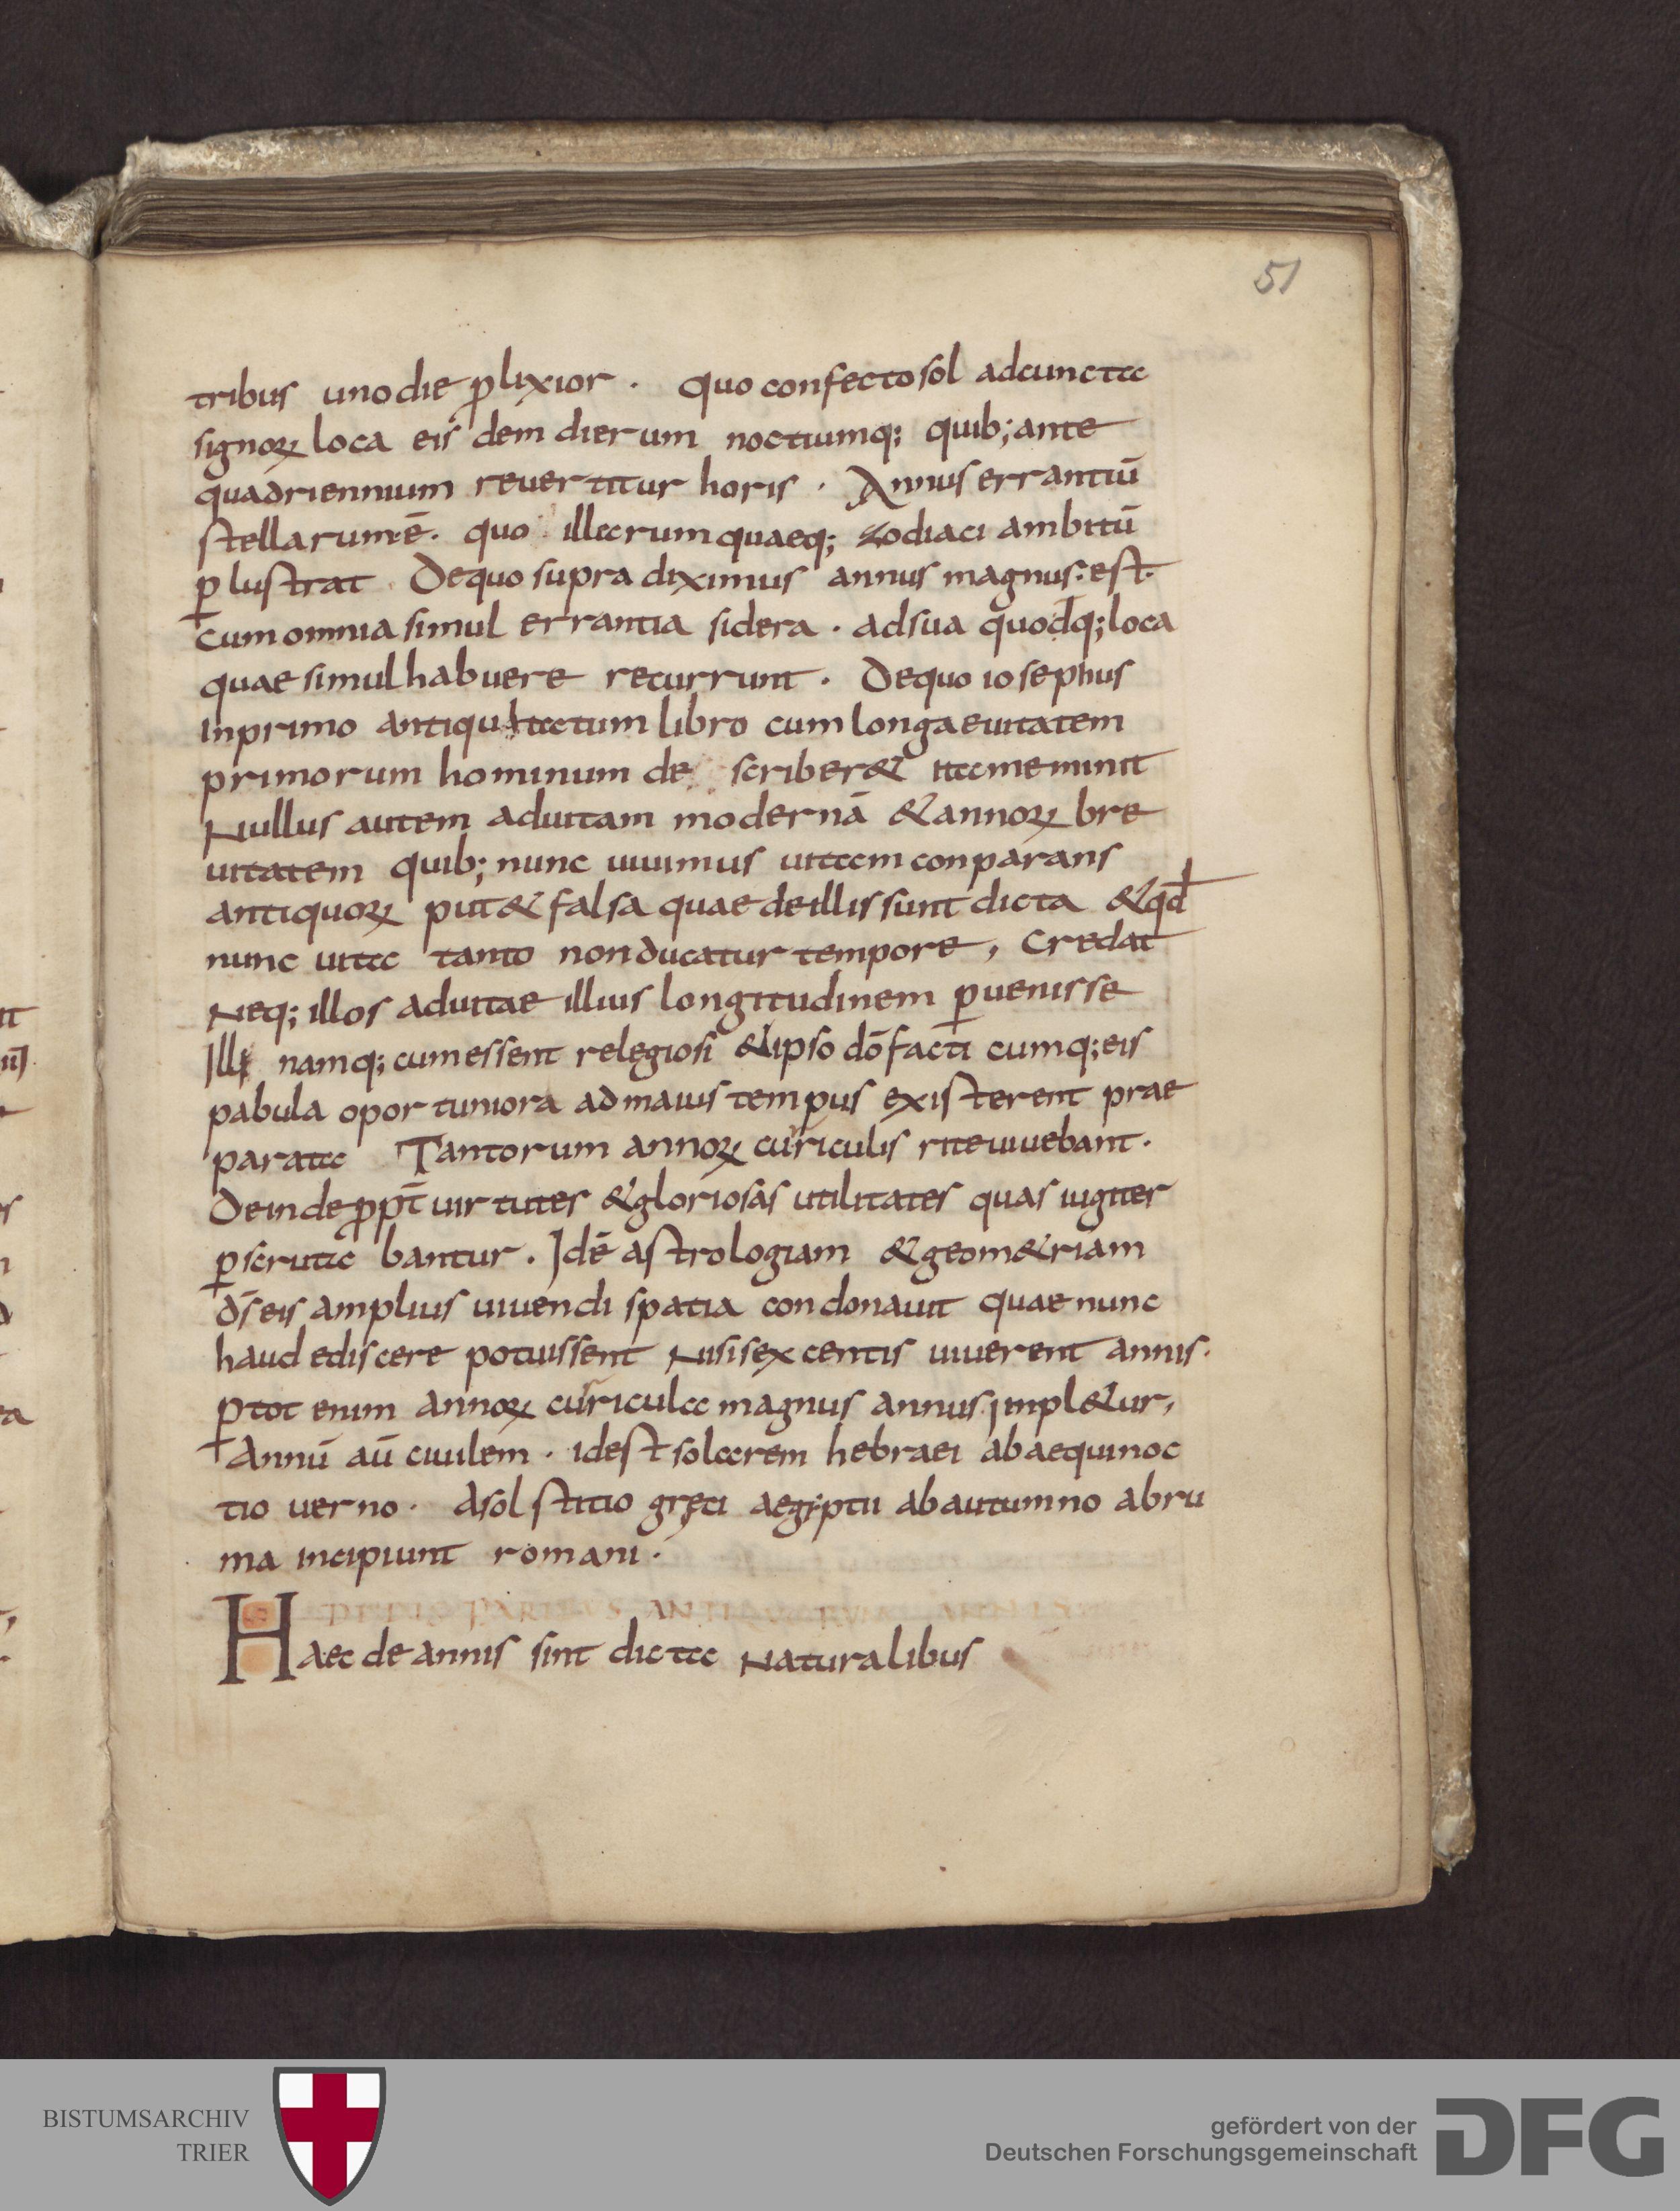 51
tribus uno die ꝓlixior · quo confecto sol ad cuncta
signoꝝ loca eis dem dierum noctiumq; quib; ante
quadriennium reuertitur horis · Annus errantiū
stellarum ē · quo illarum quaeq; zodiaci ambitū
ꝑlustrat · De quo supra diximus annus magnus · est ·
cum omnia simul errantia sidera · ad sua quodq; loca
quae simul habuere recurrunt · De quo iosephus
In primo antiquitatum libro cum longaeuitatem
primorum hominum de scriber& ita meminit
Nullus autem ad uitam modernā & annoꝝ bre
uitatem quib; nunc uiuimus uitam conparans
antiquoꝝ put& falsa quae de illis sunt dicta & qđ
nunc uita tanto non ducatur tempore, Credat
Neq; illos ad uitae illius longitudinem ꝑuenisse
Illi namq; cum essent relegiosi & ab ipso dō facti cumq; eis
pabula opor tuniora ad maius tempus existerent prae
parata Tantorum annoꝝ curiculis rite uiuebant ·
Deinde ꝓpt̄ uirtutes & gloriosas utilitates quas iugiter
ꝑscruta bantur · Idē astrologiam & geom&riam
d̄s eis amplius uiuendi spatia condonauit quae nunc
haud ediscere potuissent Nisi sex centis uiuerent annis ·
ꝑ tot enim annoꝝ curicula magnus annus impl&ur,
Annū aū ciuilem · id est solarem hebraei ab aequinoc
tio uerno · A sol stitio gręci aegiptii ab autumno a bru
ma incipiunt romani ·
Haec de annis sint dicta Naturalibus
BISTUMSARCHIV
TRIER
gefördert von der
Deutschen Forschungsgemeinschaft
DFG